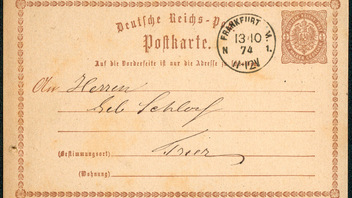 Deutsche Reichs-Post
Postkarte.
FRANKFURT A. M.
13 10
N 74 1.
Auf die Vorderseite ist nur die Adresse
An Herren
Geb Schloß
Trier
(Bestimmungsort)
(Wohnung)